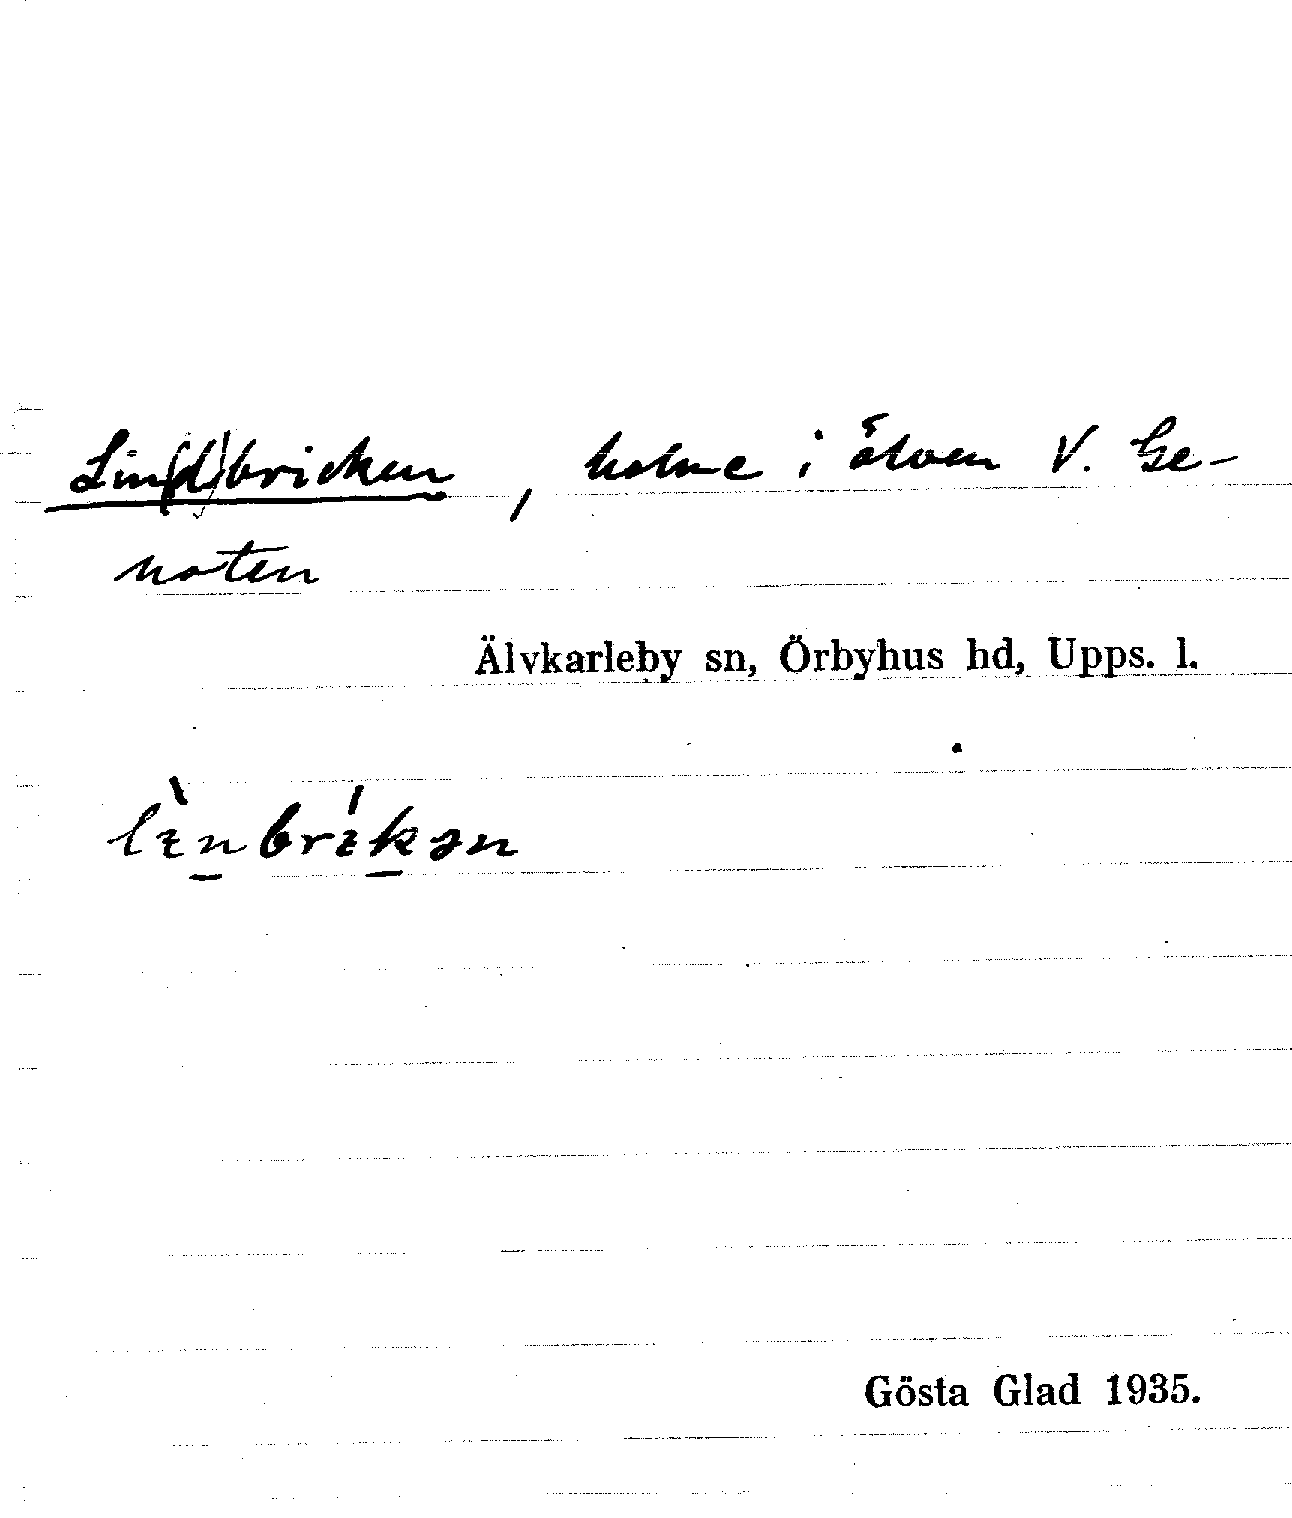 Lin(d)bricken, holme i älven V. Ge-
noten
Älvkarleby sn, Örbyhus hd, Upps. l.
lìnbríkən
Gösta Glad 1935.